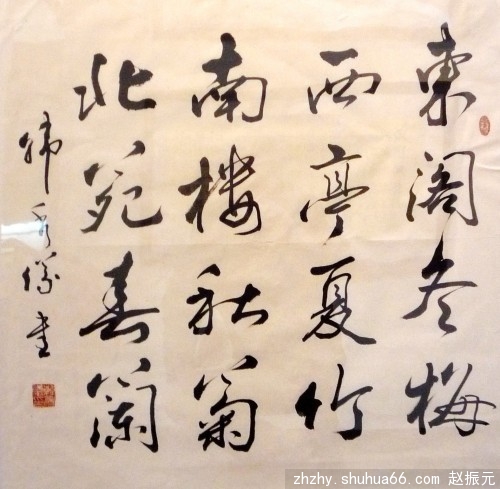 東阁冬梅
西亭夏竹
南楼秋菊
北苑春蘭
書
zhzhy.shuhua66.com 赵振元